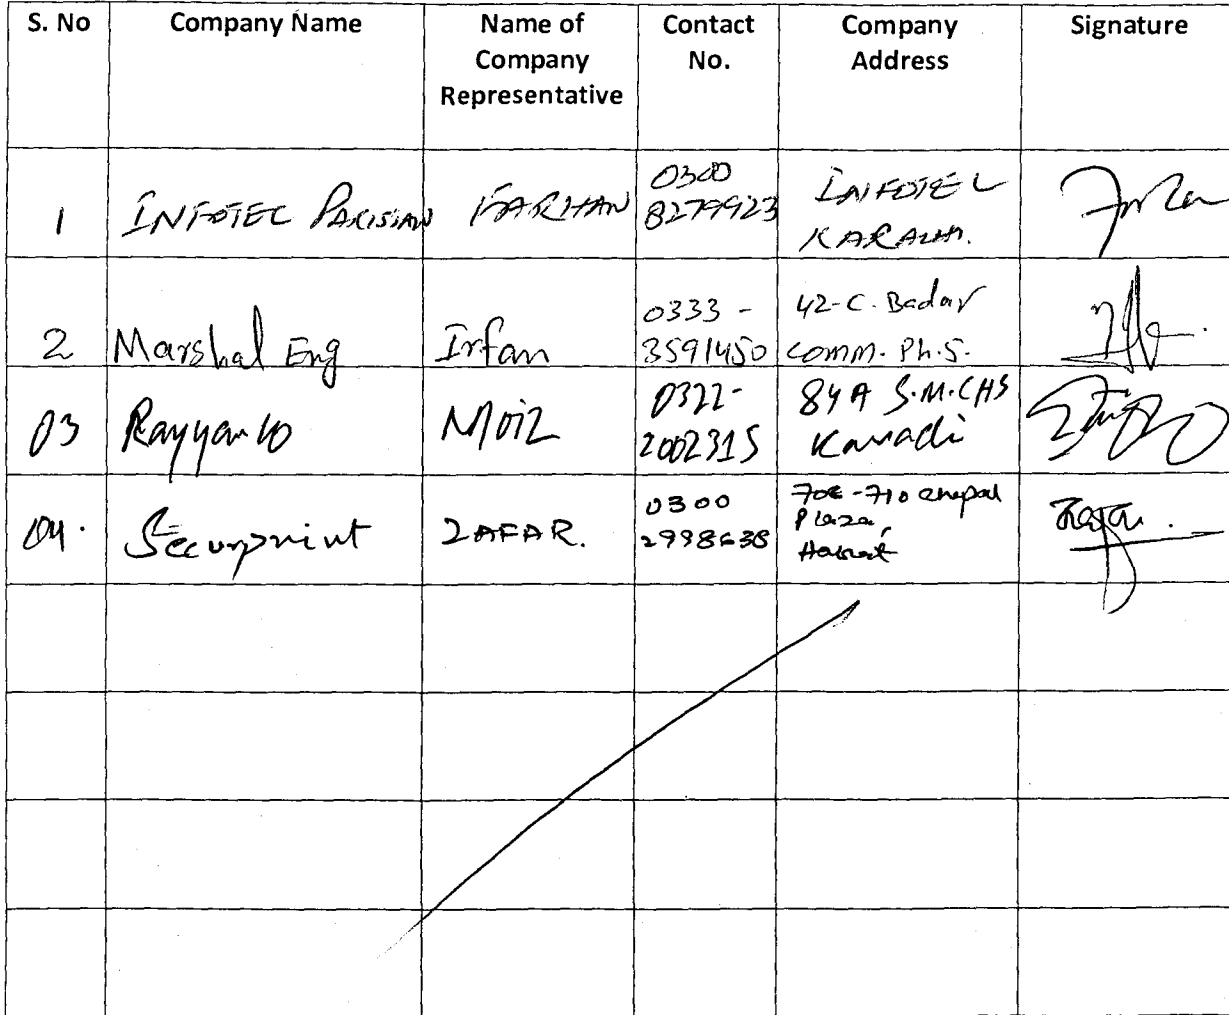 S. No
Company Name
Name of
Company
Representative
Contact
No.
Company
Address
Signature
1
INFOTEC PAKISTAN
FARHAN
0300
8279923
INFOTEC
KARACHI.
2
Marshal Eng
Irfan
0333 -
3591450
42-C. Badar
comm. Ph.5.
03
Rayyan
Moiz
0322-
2002315
84A S.M.CHS
Karachi
04.
Securprint
ZAFAR.
0300
-710
Plaza,